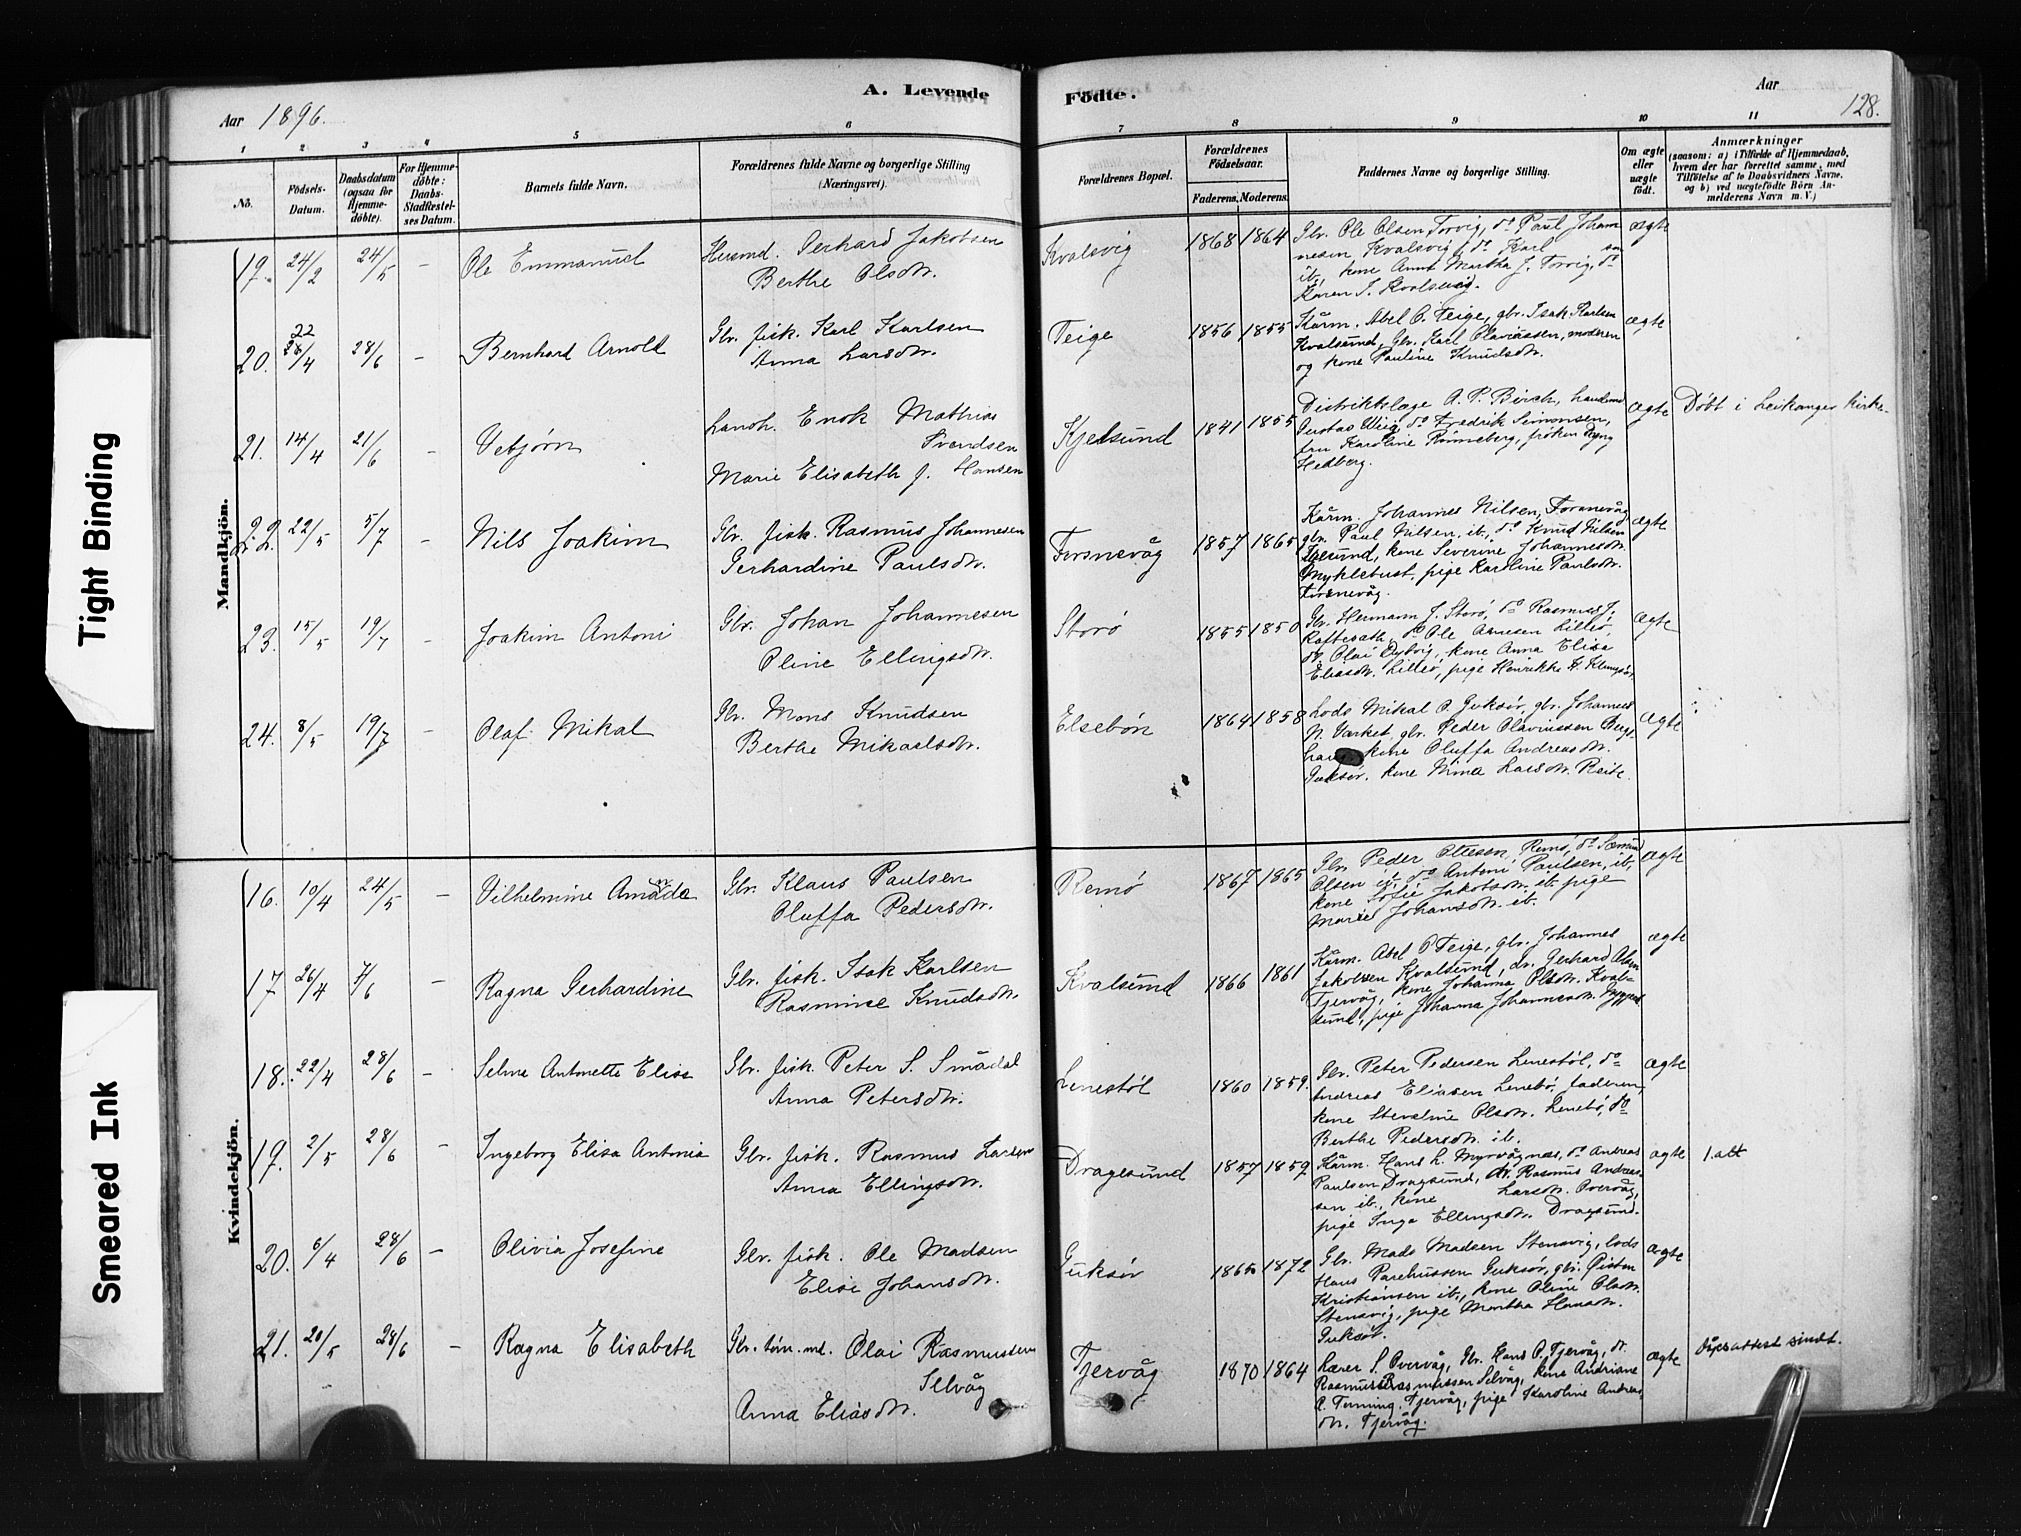 Tight Binding
Smeared Ink
A. Levende Födte.
Aar 1896.
Aar
128.
1 2 3 4 5 6 7 8 9 10 11
No.
Födsels-Datum.
Daabsdatum (ogsaa for Hjemme-döbte).
For Hjemme-döbte: Daabs-Stadfæstel-ses Datum.
Barnets fulde Navn.
Forældrenes fulde Navne og borgerlige Stilling (Næringsvei).
Forældrenes Bopæl.
Forældrenes Födselsaar.
Faderens. Moderens.
Faddernes Navne og borgerlige Stilling.
Om ægte eller uægte født.
Anmærkninger
(saasom: a) i Tilfælde af Hjemmedaab,
hvem der har forrettet samme, med
Tilföielse af to Daabsvidners Navne,
og b) ved uægtefödte Börn An-
melderens Navn m. V.)
Mandkjön.
19. 24/2 24/5 – Ole Emmanuel
Gerhard Jakobsen
Berthe Olsdtr.
Kvalsvig 1868 1864
Gbr. Ole Olsen Torvig, do Paul Johan
nesen Kvalsvig, do Karl
ib, kone Anne Martha J. Torvig, do
Karen J. Kvalsvig.
ægte
20. 22 28/4 28/6 – Bernhard Arnold
Gbr. fisk. Karl Karlsen
Anna Larsdtr.
Teige 1856 1855
Kårm. Abel O. Teige, gbr. Isak Karlsen
Kvalsund, Gbr. Karl Olaviussen, moderen
og kone Pauline Knudsdtr.
ægte
21. 14/4 21/6 – Vebjørn
Landh. Enok Mathias
Svendsen
Marie Elisabeth f. Hansen
Kjelsund 1841 1855
Distriktslæge A. P. Birch,
Gustav do Fredrik Simonsen,
fru Karoline Rønneberg, frøken
Hedberg.
ægte
Døbt i Leikanger kirke.
22. 22/5 5/7 – Nils Joakim
Gbr. fisk. Rasmus Johannesen
Gerhardine Paulsdtr.
Torsnevåg 1857 1865
Kårm. Johannes Nilsen, Torsnevåg
gbr. Paul Nilsen, ib., do Knud Nilsen
kone Severine Johannesdtr.
Myklebust, pige Karoline Paulsdtr.
Torsnevåg.
ægte
23. 15/5 19/7 – Joakim Antoni
Gbr. Johan Johannesen
Oline Ellingsdtr.
Storø 1855 1850
Gbr. Hermann J. Storø, do Rasmus J.
Raftesath, do Ole Arnesen Lillø,
dr. Olai Dybvig, kone Anna Elisa
Eliasdtr. Lillø, pige Henrikke H.
ægte
24. 8/5 19/7 – Olaf Mikal
Gbr. Mons Knudsen
Berthe Mikaelsdtr.
Elsebøn 1864 1858
Lods Mikal O. Guksør, gbr. Johannes
N. Varket, gbr. Peder Olaviussen Berg
kone Oluffa Andreasdtr.
Guksør, kone Mina Larsdtr. Reite.
ægte
Kvindekjön.
16. 10/4 24/5 – Vilhelmine Amanda
Gbr. Klaus Paulsen
Oluffa Pedersdtr.
Remø 1867 1865
Gbr. Peder Ottesen Remø, do Sæmund
Olsen ib., do Antoni Paulsen, ib,
kone Sofie Jakobsdtr. ib. pige
Marie Johansdtr. ib.
ægte
17. 26/4 7/6 – Ragna Gerhardine
Gbr. fisk. Isak Karlsen
Rasmine Knudsdtr.
Kvalsund 1866 1861
Kårm. Abel O Teige, gbr. Johannes
Jakobsen Kvalsund, dr. Gerhard Olsen
Tjervåg, kone Johanna Olsdtr. Kval-
sund, pige Johanna Johannesdtr.
ægte
18. 22/4 28/6 – Selma Antonette Elise
Gbr. fisk. Peter S. Smådal
Anna Petersdtr.
Lenestøl 1860 1859.
Gbr. Peter Pedersen Lenestøl, do
Andreas Eliasen Lenebø, faderen,
kone Steveline Olsdtr. Lenebø, do
Berthe Pedersdtr. ib.
ægte
19. 2/5 28/6 – Ingeborg Elisa Antonia
Gbr. fisk. Rasmus Larsen
Anna Ellingsdtr.
Dragesund 1857 1859
Kårm. Hans L. Myrvågnes, do Andreas
Paulsen Dragsund, dr. Rasmus Andrea-
sen ib., kone Larsdtr. Overvåg,
pige Inga Ellingsdtr. Dragsund.
ægte
1. att
20. 6/4 28/6 – Olivia Josefine
Gbr. fisk. Ole Madsen
Elise Johansdtr.
Guksør 1865 1872
Gbr. Mads Madsen Stensvig, lods
Hans Guksør, gbr. Peter
Kristiansen ib., kone Oline Olsdtr.
Stensvig, pige Martha Hansdtr.
Guksør.
ægte
21. 20/5 28/6 – Ragna Elisabeth
Gbr. tøm. md. Olai Rasmussen
Selvåg
Anna Eliasdtr.
Tjervåg 1870 1864
Lærer S. Overvåg, Gbr. Hans O. Tjervåg, dr.
Rasmus Rasmussen Selvåg, kone Andriane
Tjervåg, pige Karoline Andreas
dtr. Tjervåg.
ægte
Dåbsattest sendt.